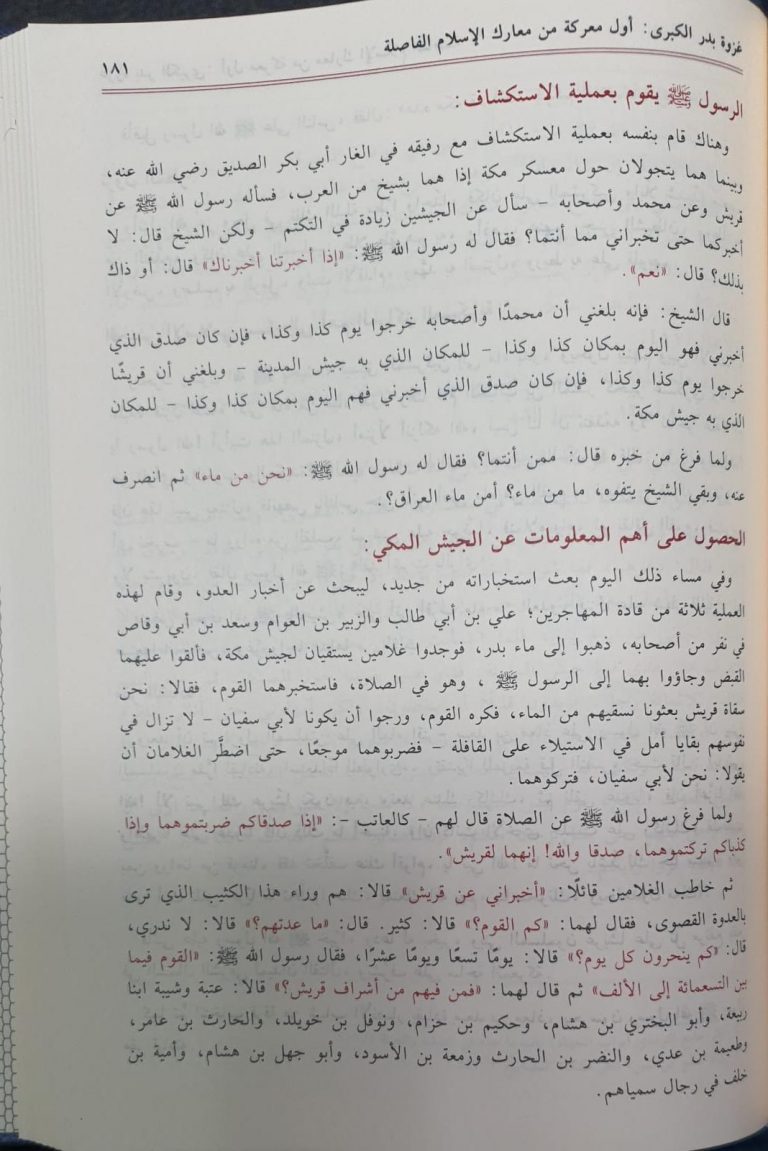 غزوة بدر الكبرى: أول معركة من معارك الإسلام الفاصلة
١٨١
الرسول ﷺ يقوم بعملية الاستكشاف:
وهناك قام بنفسه بعملية الاستكشاف مع رفيقه في الغار أبي بكر الصديق رضي الله عنه،
وبينما هما يتجولان حول معسكر مكة إذا هما بشيخ من العرب، فسأله رسول الله ﷺ عن
قريش وعن محمد وأصحابه – سأل عن الجيشين زيادة في التكتم – ولكن الشيخ قال: لا
أخبركما حتى تخبراني مما أنتما؟ فقال له رسول الله ﷺ: «إذا أخبرتنا أخبرناك» قال: أو ذاك
بذلك؟ قال: «نعم».
قال الشيخ: فإنه بلغني أن محمدًا وأصحابه خرجوا يوم كذا وكذا، فإن كان صدق الذي
أخبرني فهو اليوم بمكان كذا وكذا – للمكان الذي به جيش المدينة – وبلغني أن قريشًا
خرجوا يوم كذا وكذا، فإن كان صدق الذي أخبرني فهم اليوم بمكان كذا وكذا – للمكان
الذي به جيش مكة.
ولما فرغ من خبره قال: ممن أنتما؟ فقال له رسول الله ﷺ: «نحن من ماء» ثم انصرف
عنه، وبقي الشيخ يتفوه، ما من ماء؟ أمن ماء العراق؟.
الحصول على أهم المعلومات عن الجيش المكي:
وفي مساء ذلك اليوم بعث استخباراته من جديد، ليبحث عن أخبار العدو، وقام لهذه
العملية ثلاثة من قادة المهاجرين؛ علي بن أبي طالب والزبير بن العوام وسعد بن أبي وقاص
في نفر من أصحابه، ذهبوا إلى ماء بدر، فوجدوا غلامين يستقيان لجيش مكة، فألقوا عليهما
القبض وجاؤوا بهما إلى الرسول ﷺ ، وهو في الصلاة، فاستخبرهما القوم، فقالا: نحن
سقاة قريش بعثونا نسقيهم من الماء، فكره القوم، ورجوا أن يكونا لأبي سفيان – لا تزال في
نفوسهم بقايا أمل في الاستيلاء على القافلة – فضربوهما موجعًا، حتى اضطَّر الغلامان أن
يقولا: نحن لأبي سفيان، فتركوهما.
ولما فرغ رسول الله ﷺ عن الصلاة قال لهم – كالعاتب –: «إذا صدقاكم ضربتموهما وإذا
كذباكم تركتموهما، صدقا والله! إنهما لقريش».
ثم خاطب الغلامين قائلًا: «أخبراني عن قريش» قالا: هم وراء هذا الكثيب الذي ترى
بالعدوة القصوى، فقال لهما: «كم القوم؟» قالا: كثير. قال: «ما عدتهم؟» قالا: لا ندري،
قال: «كم ينحرون كل يوم؟» قالا: يومًا تسعًا ويومًا عشرًا، فقال رسول الله ﷺ: «القوم فيما
بين التسعمائة إلى الألف» ثم قال لهما: «فمن فيهم من أشراف قريش؟» قالا: عتبة وشيبة ابنا
ربيعة، وأبو البختري بن هشام، وحكيم بن حزام، ونوفل بن خويلد، والحارث بن عامر،
وطعيمة بن عدي، والنضر بن الحارث وزمعة بن الأسود، وأبو جهل بن هشام، وأمية بن
خلف في رجال سمياهم.